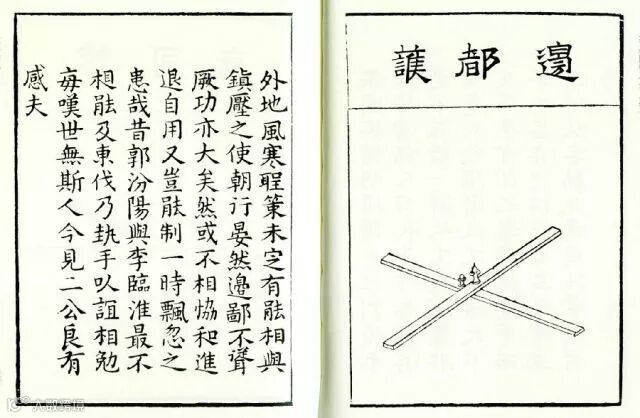 邊都護
外地風寒聖策未定有能相與
鎮壓之使朝行晏然邊鄙不聳
厥功亦大矣然或不相恊和進
退自用又豈能制一時飄忽之
患哉昔郭汾陽與李臨淮最不
相能及東伐乃執手以誼相勉
每嘆世無斯人今見二公良有
感夫
大数跨境